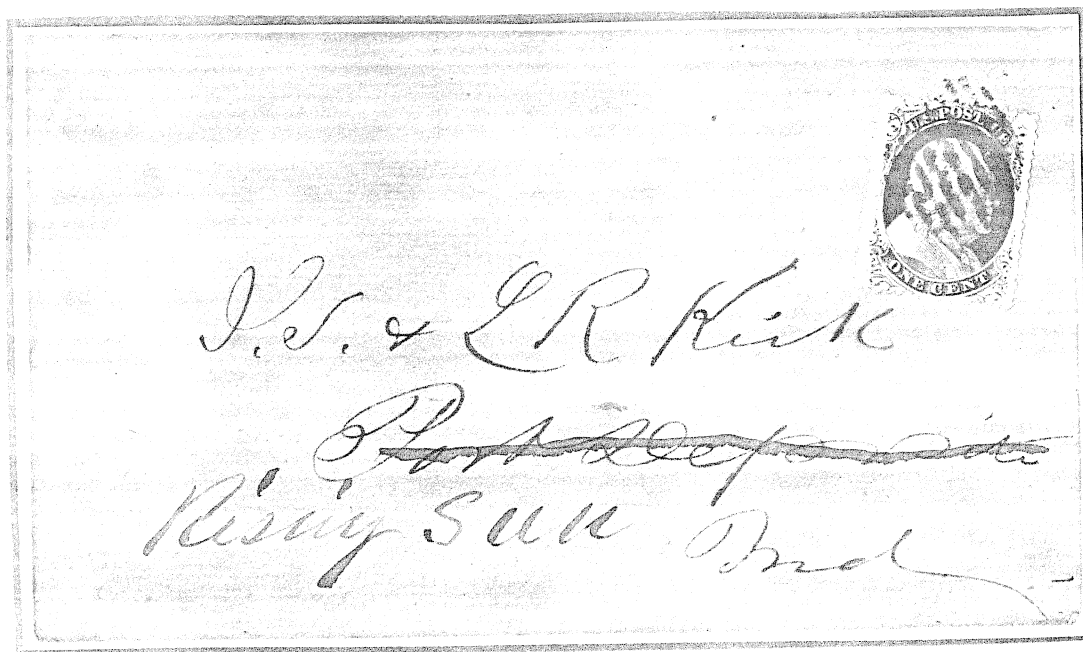 U.S. POST OF
ONE CENT
J.S. & L R Kirk
Port Deposite
Rising Sun Md